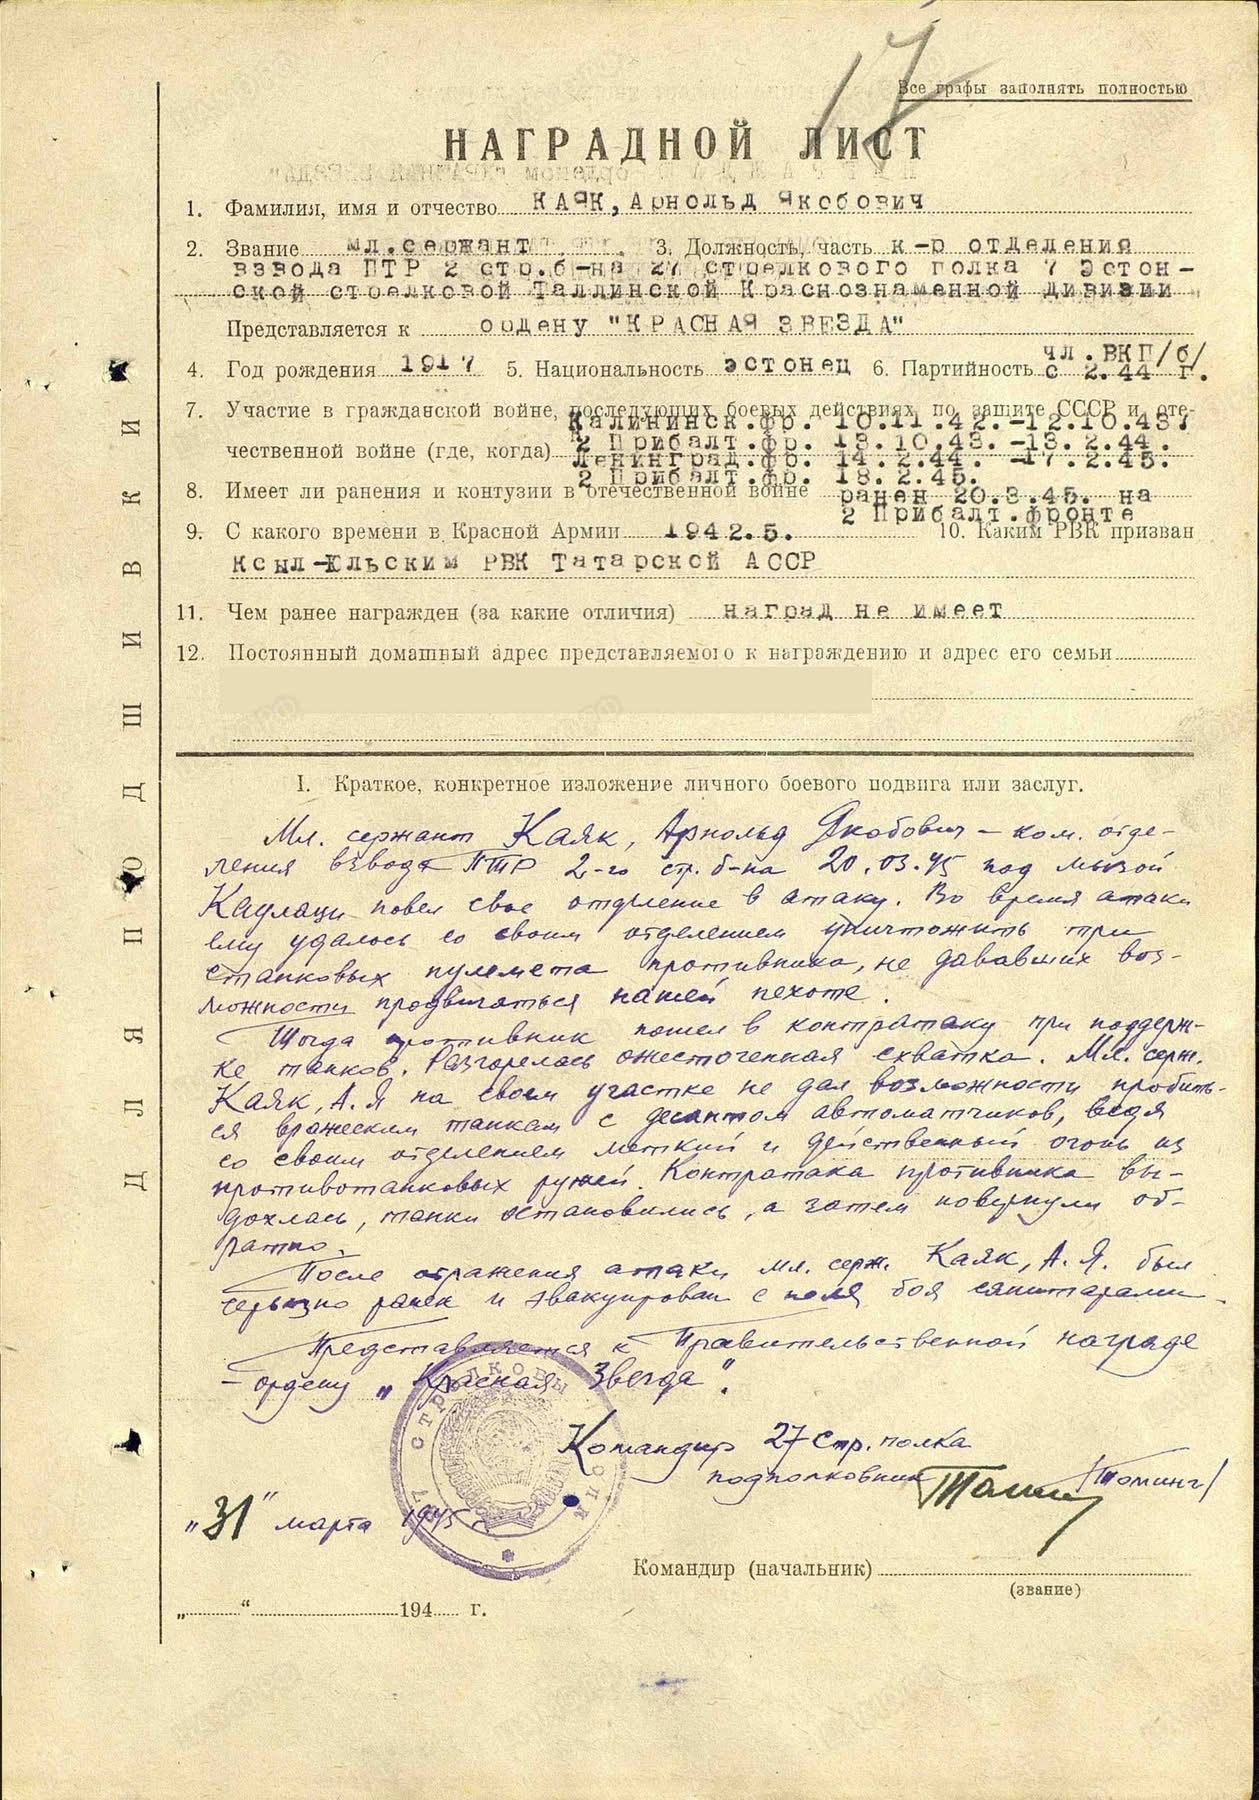 17
Все графы заполнять полностью
НАГРАДНОЙ ЛИСТ
1. Фамилия, имя и отчество КАЯК, Арнольд Якобович
2. Звание мл.сержант 3. Должность, часть к-р отделения
взвода ПТР 2 стр.б-на 27 стрелкового полка 7 Эстон-
ской стрелковой Таллинской Краснознаменной дивизии
Представляется к ордену "КРАСНАЯ ЗВЕЗДА"
4. Год рождения 1917 5. Национальность эстонец 6. Партийность чл.ВКП/б/
с 2.44 г.
7. Участие в гражданской войне, последующих боевых действиях по защите СССР и оте-
Калининск.фр. 10.11.42.-12.10.43.
2 Прибалт.фр. 13.10.43.-13.2.44.
чественной войне (где, когда) Ленинград.фр. 14.2.44. -17.2.45.
2 Прибалт.фр. 18.2.45.
8. Имеет ли ранения и контузии в отечественной войне ранен 20.3.45. на
2 Прибалт.фронте
9. С какого времени в Красной Армии 1942.5. 10. Каким РВК призван
Ксыл-Юльским РВК Татарской АССР
11. Чем ранее награжден (за какие отличия) наград не имеет
12. Постоянный домашный адрес представляемого к награждению и адрес его семьи
I. Краткое, конкретное изложение личного боевого подвига или заслуг.
Мл. сержант Каяк, Арнольд Якобович – ком. отде-
ления взвода ПТР 2-го стр. б-на 20.03.45 под мызой
Каулаци повел свое отделение в атаку. Во время атаки
ему удалось со своим отделением уничтожить три
станковых пулемета противника, не дававших воз-
можности продвигаться нашей пехоте.
Тогда противник пошел в контратаку при поддерж-
ке танков. Разгорелась ожесточенная схватка. Мл. серж.
Каяк, А.Я на своем участке не дал возможности пробить-
ся вражеским танкам с десантом автоматчиков, ведя
со своим отделением меткий и действенный огонь из
противотанковых ружей. Контратака противника вы-
дохлась, танки остановились, а затем повернули об-
ратно.
После отражения атаки мл. серж. Каяк, А.Я. был
серьезно ранен и эвакуирован с поля боя санитарами.
Представляется к Правительственной награде
– ордену „Красная Звезда".
Командир 27 стр. полка
подполковник /Томинг/
„31" марта 1945 г.
Командир (начальник)
(звание)
„ “ 194 г.
ДЛЯ ПОДШИВКИ